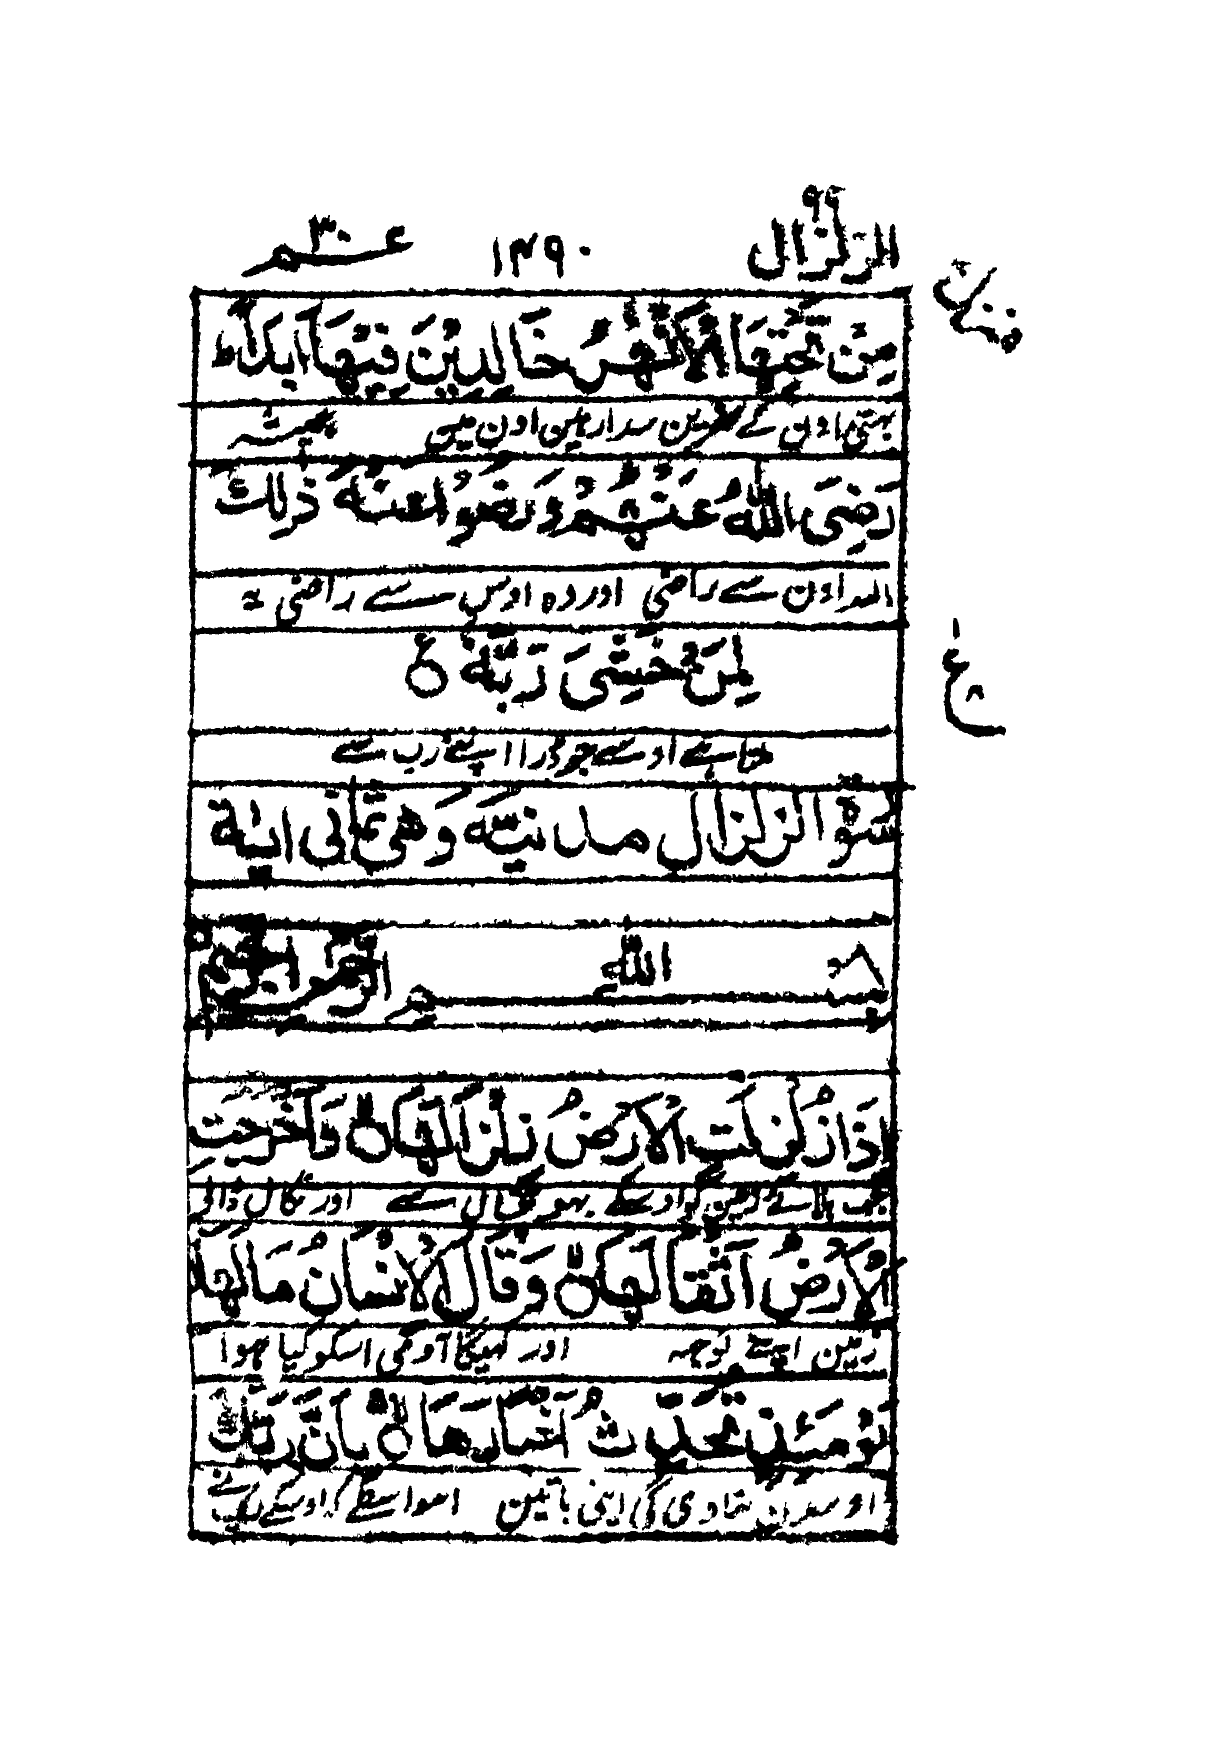 الزلزال ٩٩ ١٤٩٠ عم ٣٠
مِنْ تَحْتِهَا الْاَنْهٰرُ خَالِدِيْنَ فِيْهَا اَبَدًا ؕ
بہتی اون کے نہرین سدا رہین اون مین ہمیشہ
رَضِیَ اللّٰهُ عَنْهُمْ وَ رَضُوْا عَنْهُ ؕ ذٰلِكَ
اللہ اون سے راضی اور وہ اوس سے راضی یہ
لِمَنْ خَشِیَ رَبَّهٗ
ع ٨
اوسے جو ڈرا اپنے رب سے
سورة الزلزال مدنية وهي ثماني اية
بسم الله الرحمن الرحيم
اِذَا زُلْزِلَتِ الْاَرْضُ زِلْزَالَهَا ۙ وَ اَخْرَجَتِ
جب ہلائے زمین کو اوسکے بھونچال سے اور نکال ڈالے
الْاَرْضُ اَثْقَالَهَا ۙ وَ قَالَ الْاِنْسَانُ مَا لَهَا
زمین اپنے بوجھ اور کہیگا آدمی اسکو کیا ہوا
يَوْمَئِذٍ تُحَدِّثُ اَخْبَارَهَا ۙ بِاَنَّ رَبَّكَ
اوسدن بتا دی گی اپنی باتین اسواسطے کہ اوسکے رب نے